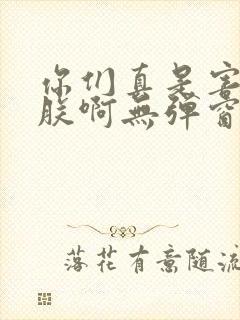 你们真是害
朕啊無弹窗
落花有意随流